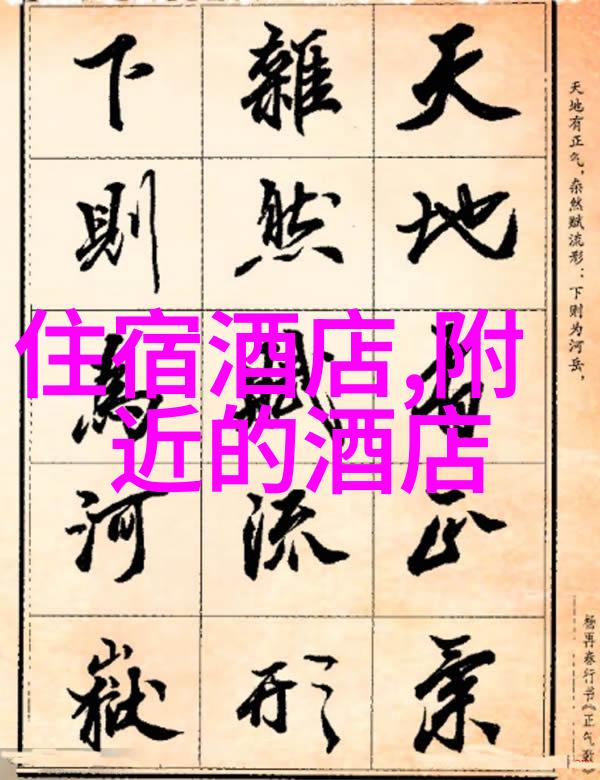 天地有正氣
雜然賦流形
下則為河嶽
天地有正气，杂然赋流形；下则为河岳，
杨再春行书《正气歌》
住宿酒店,附
近的酒店